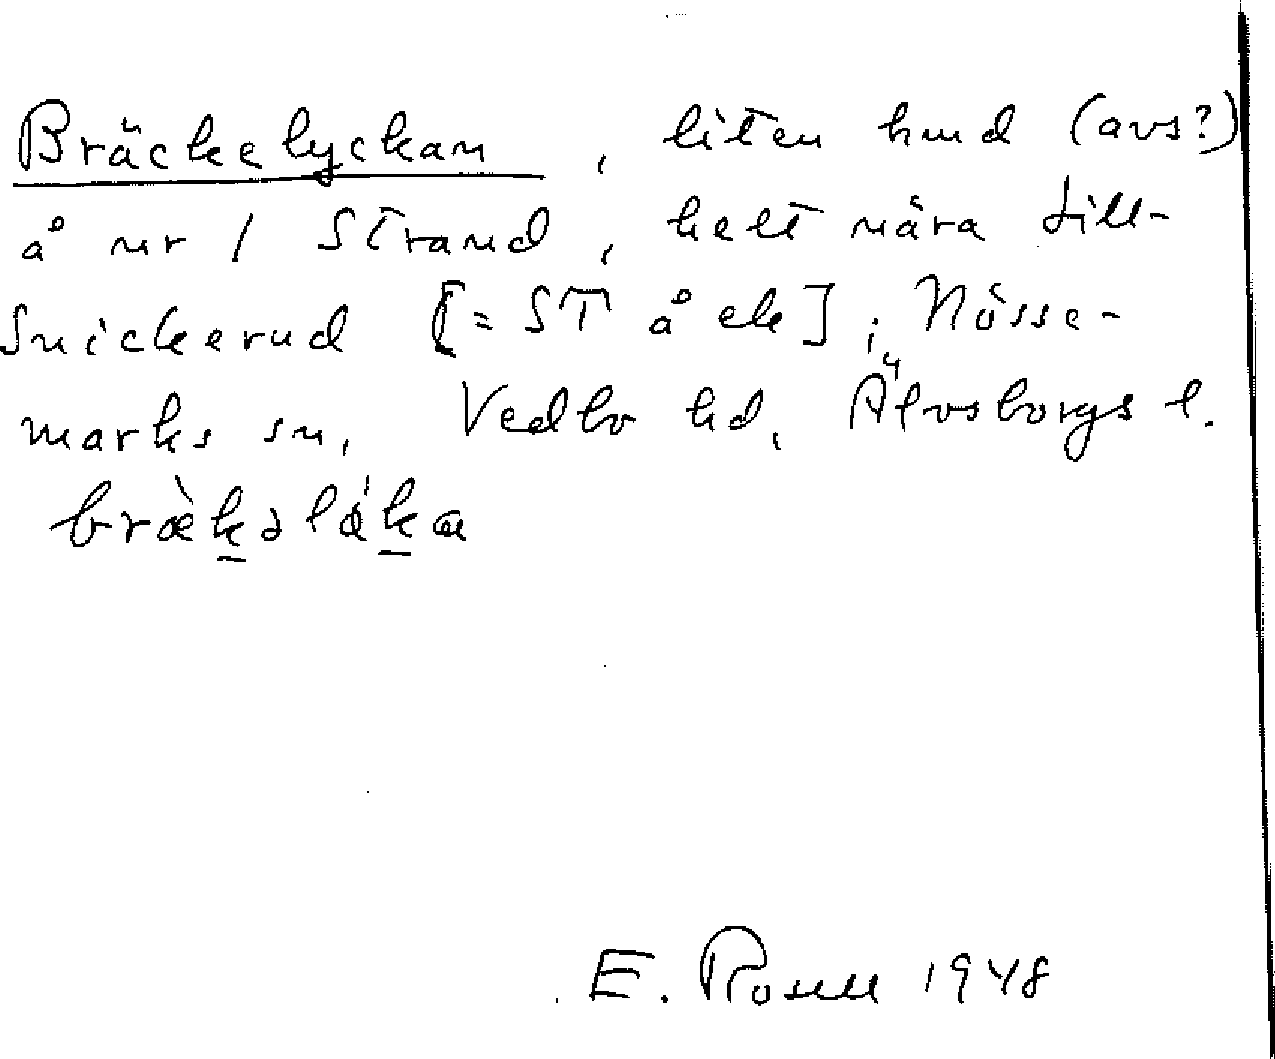 Bräckelyckan, liten hmd (avs?)
å nr 1 Strand, helt nära till-
Snickerud [= ST å ek]; Nösse-
marks sn, Vedbo hd, Älvsborgs l.
bræ̀kəlåka
E. Rosell 1948